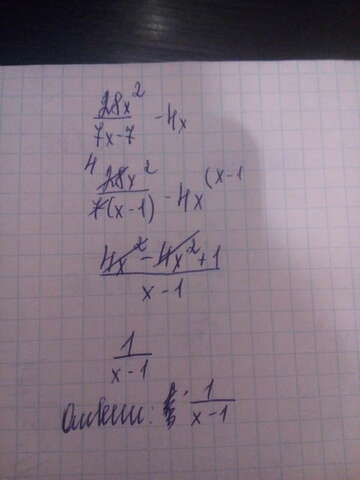 28x² / 7x-7 - 4x
4 28x² / 7(x-1) - 4x (x-1
4x² - 4x² + 1 / x-1
1 / x-1
Ответ: 1 / x-1